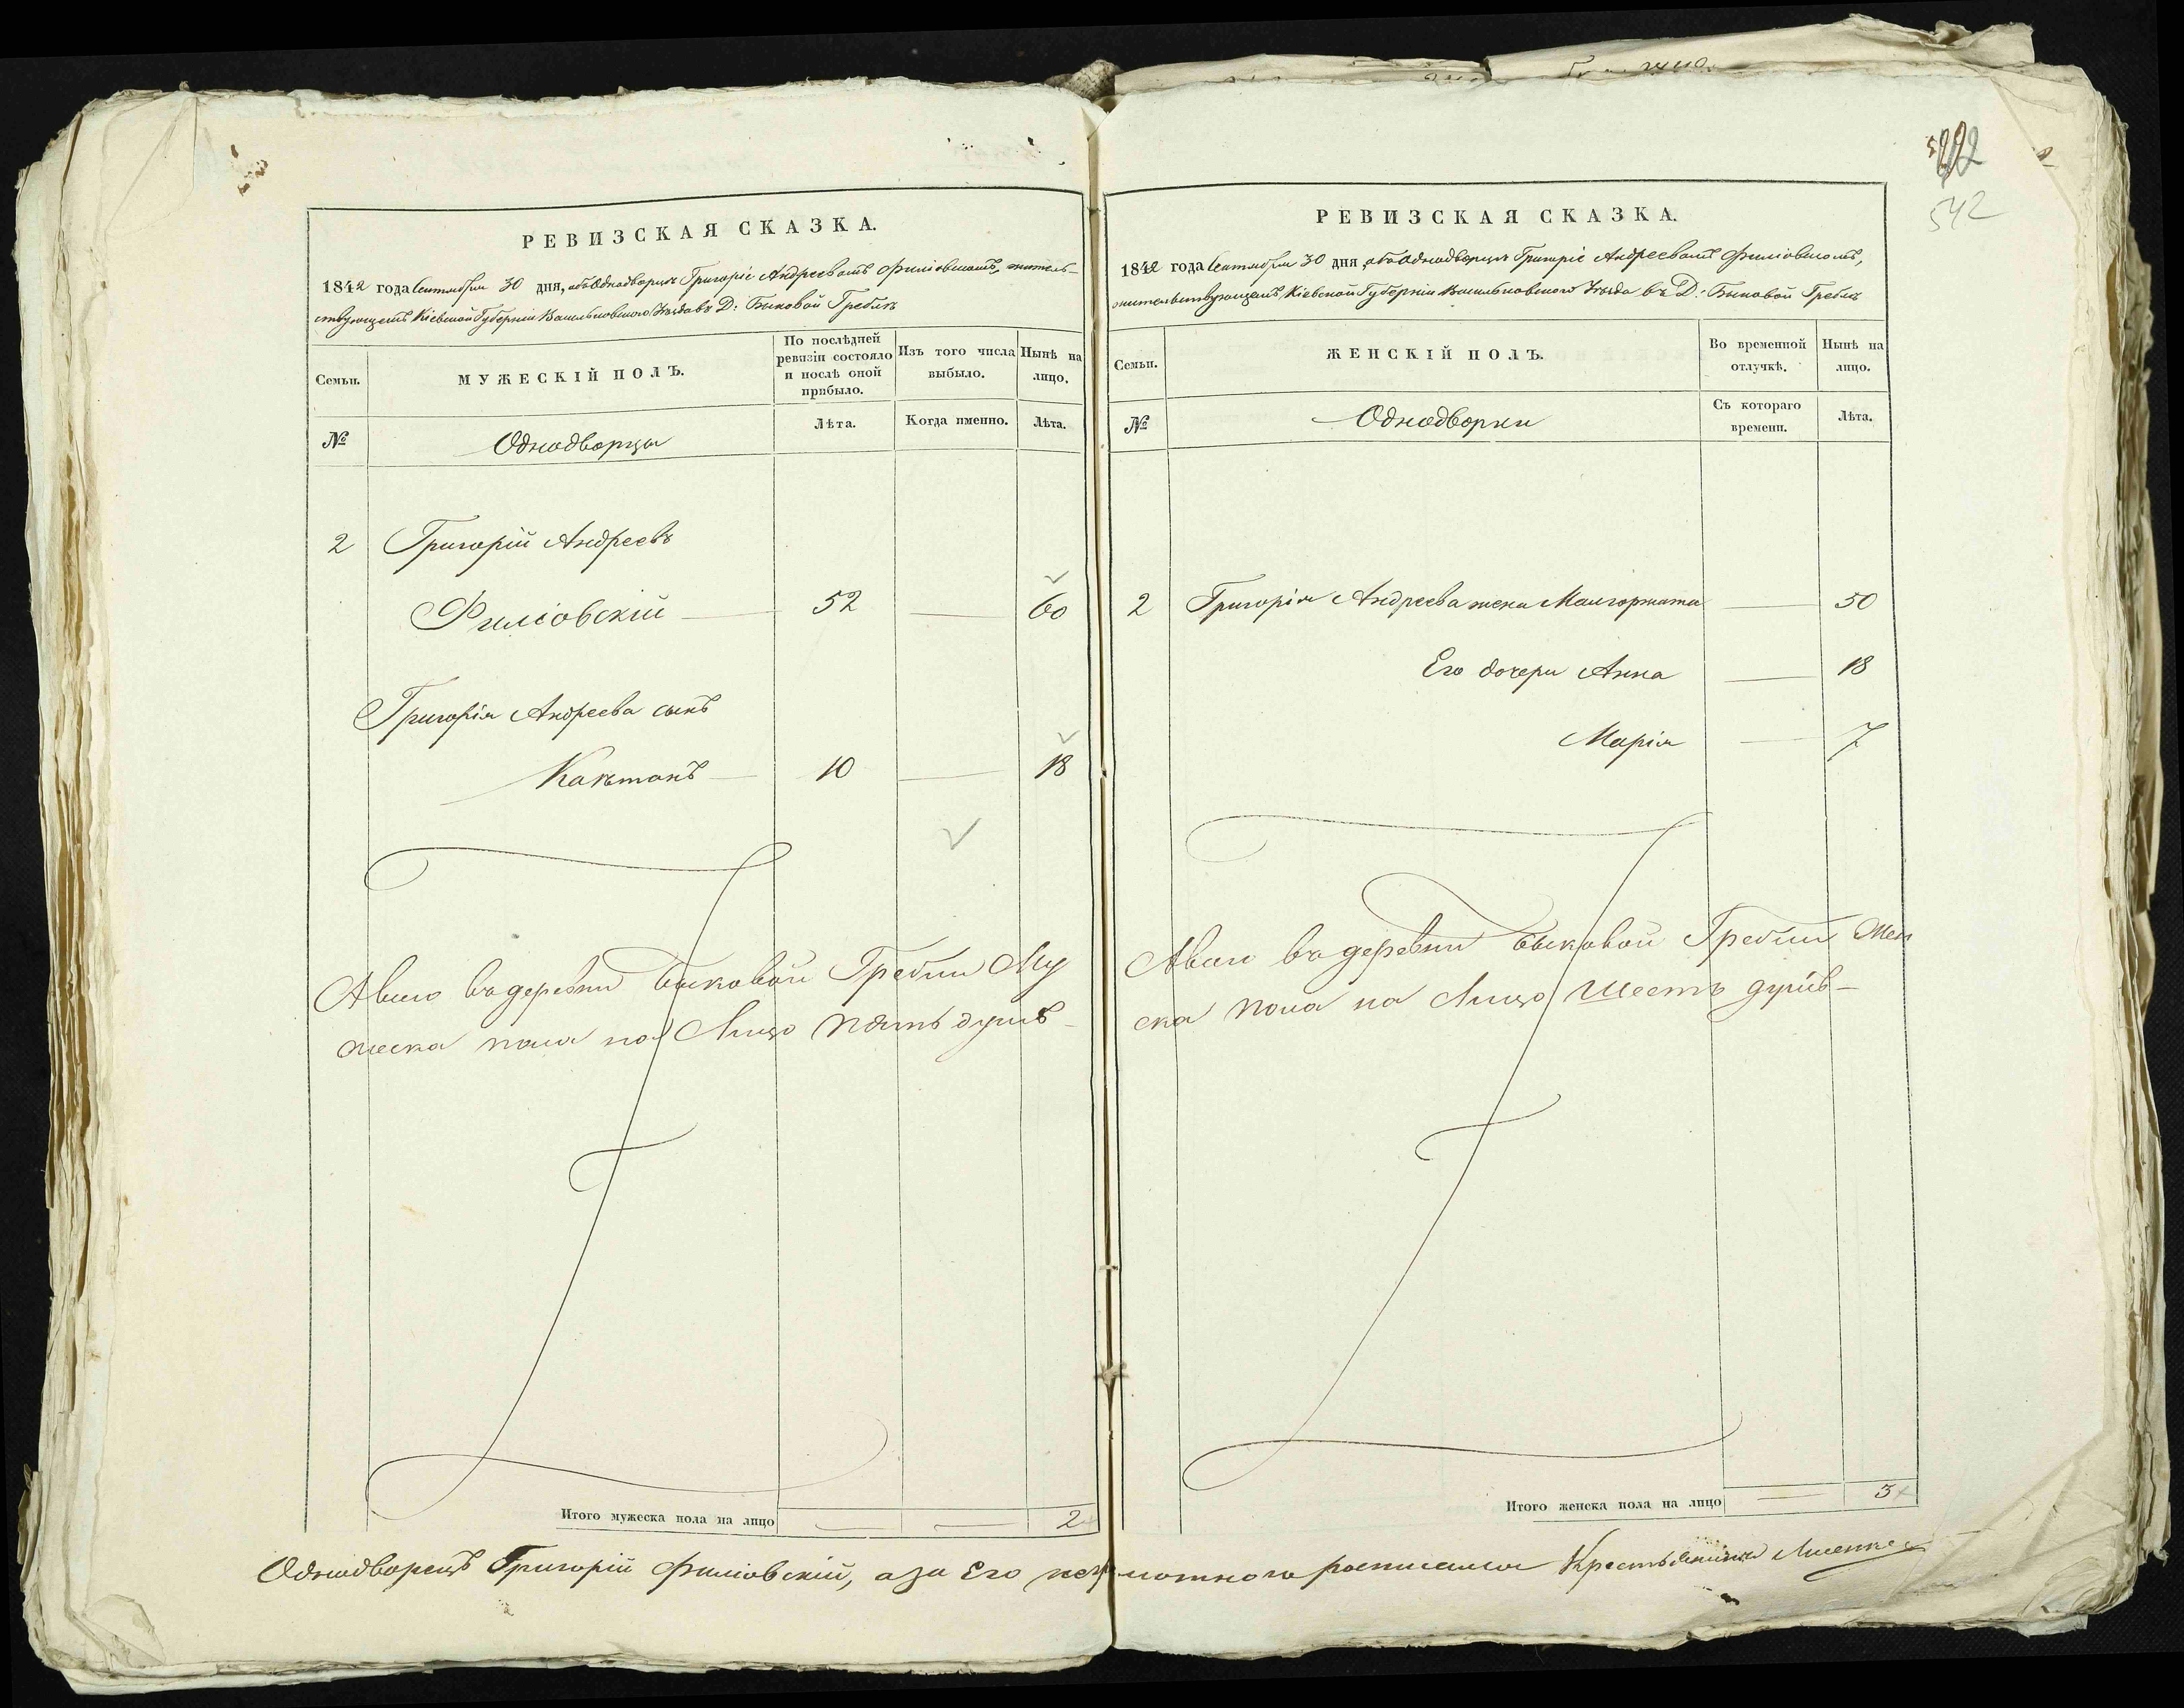 РЕВИЗСКАЯ СКАЗКА.
1842 года Сентября 30 дня, объ Однодворцѣ Григоріе Андреевомъ Филіовскомъ, житель-
ствующемъ Кіевской Губерніи Васильковского Уѣзда въ Д: Быковой Греблѣ
Семьи.
МУЖЕСКІЙ ПОЛЪ.
По послѣдней ревизіи состояло и послѣ оной прибыло.
Изъ того числа выбыло.
Нынѣ на лицо.
№
Однодворцы
Лѣта.
Когда именно.
Лѣта.
2 Григорій Андреевъ
Филіовскій 52 60
Григорія Андреева сынъ
Каѣтанъ 10 18
Авсего въ деревни Быковой Гребли Му
жеска пола на Лицо пять душъ
Итого мужеска пола на лицо 2
РЕВИЗСКАЯ СКАЗКА.
1842 года Сентября 30 дня, объ Однодворцѣ Григоріе Андреевомъ Филіовскомъ,
жительствующемъ Кіевской Губерніи Васильковского Уѣзда въ Д: Быковой Греблѣ
Семьи.
ЖЕНСКІЙ ПОЛЪ.
Во временной отлучкѣ.
Нынѣ на лицо.
№
Однодворки
Съ котораго времени.
Лѣта.
2 Григорія Андреева жена Малгоржата 50
Его дочери Анна 18
Марія 7
Авсего въ деревни Быковой Гребли Жен
ска пола на Лицо шесть душъ
Итого женска пола на лицо 3
Однодворецъ Григорій Филіовскій, а за Его неграмотного росписался Крестьянинъ
542